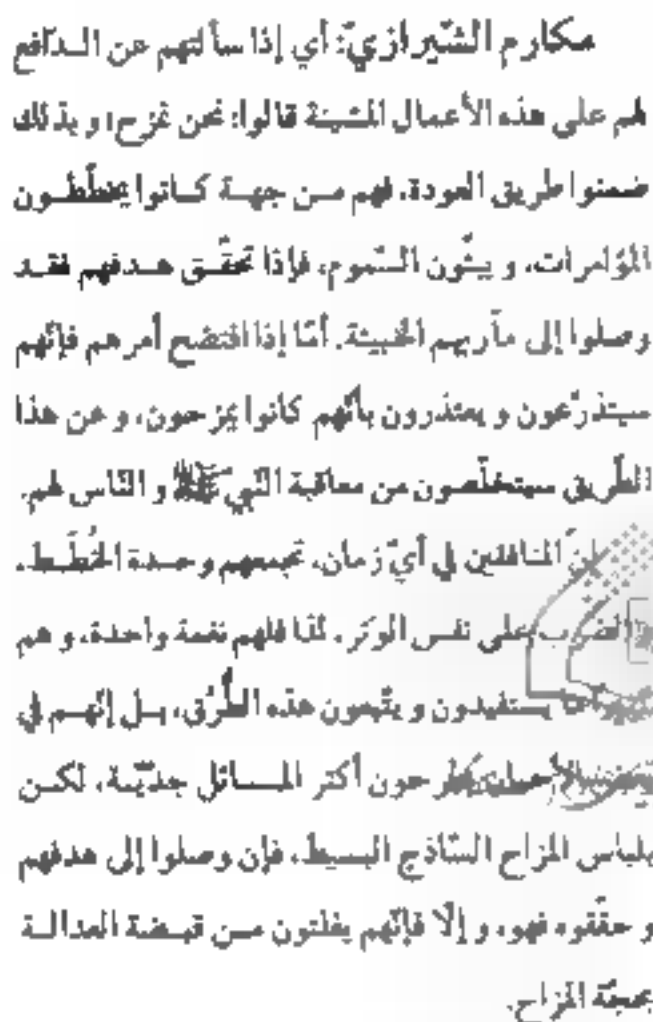 مكارم الشّيرازيّ: أي إذا سألتهم عن الدّافع
لهم على هذه الأعمال المشينة قالوا: نحن نمزح، و بذلك
ضمنوا طريق العودة، فهم من جهة كانوا يخطّطون
المؤامرات، و يبثّون السّموم، فإذا تحقّق هدفهم فقد
وصلوا إلى مآربهم الخبيثة. أمّا إذا افتضح أمرهم فإنّهم
سيتذرّعون و يعتذرون بأنّهم كانوا يمزحون، و عن هذا
الطّريق سيتخلّصون من معاقبة النّبيّ ﷺ و النّاس لهم.
إنّ المنافقين في أيّ زمان، تجمعهم وحدة الخُطَط،
و الضرب على نفس الوتر، لذا فلهم نغمة واحدة، و هم
يستفيدون و يتّبعون هذه الطُّرُق، بل إنّهم في
بعض الأحيان يطرحون أكثر المسائل جدّيّة، لكن
بلباس المزاح السّاذج البسيط، فإن وصلوا إلى هدفهم
و حقّقوه فهو، و إلّا فإنّهم يفلتون من قبضة العدالة
بحجّة المزاح.